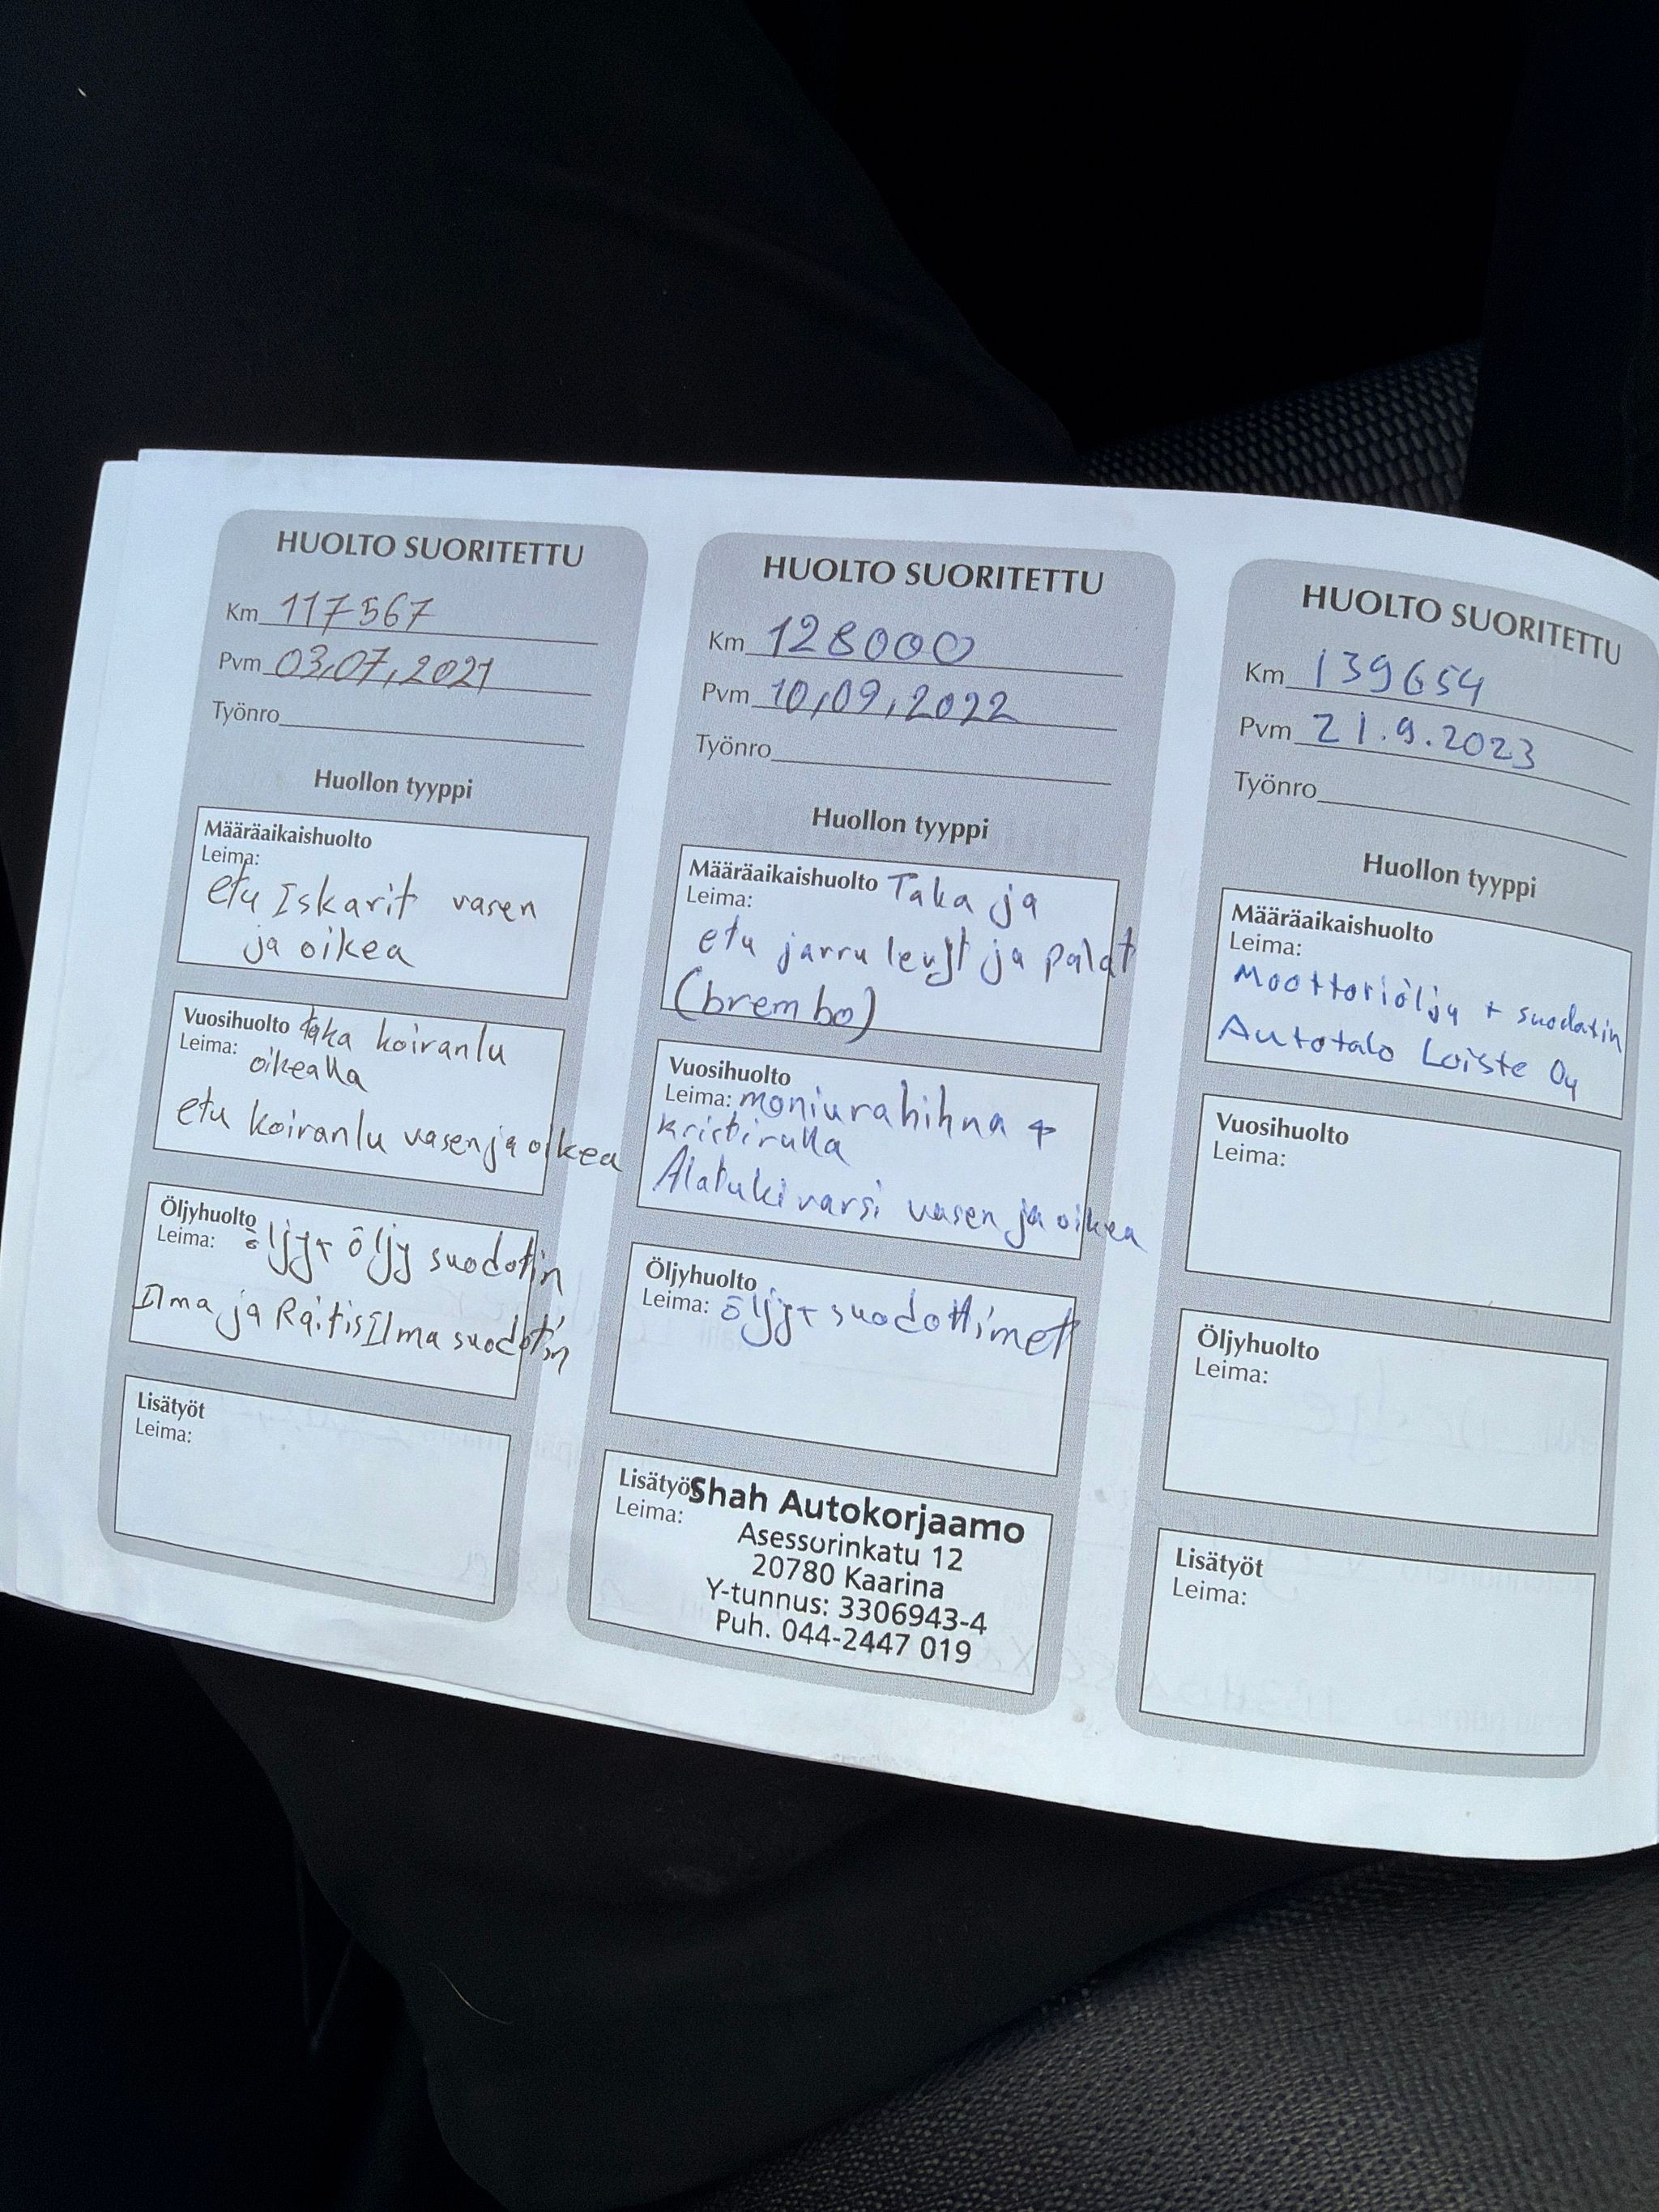 HUOLTO SUORITETTU
Km 117567
Pvm 03,07,2021
Työnro
Huollon tyyppi
Määräaikaishuolto
Leima:
etu Iskarit vasen
ja oikea
Vuosihuolto taka koiranlu
Leima: oikealla
etu koiranlu vasen ja oikea
Öljyhuolto
Leima: öljy+ öljy suodotin
Ilma ja RaitisIlma suodotin
Lisätyöt
Leima:
HUOLTO SUORITETTU
Km 128000
Pvm 10,09,2022
Työnro
Huollon tyyppi
Määräaikaishuolto Taka ja
Leima:
etu jarru levyt ja palat
(brembo)
Vuosihuolto
Leima: moniurahihna +
kristirulla
Alatukivarsi vasen ja oikea
Öljyhuolto
Leima: öljy+ suodottimet
Lisätyöt
Leima:
Shah Autokorjaamo
Asessorinkatu 12
20780 Kaarina
Y-tunnus: 3306943-4
Puh. 044-2447 019
HUOLTO SUORITETTU
Km 139654
Pvm 21.9.2023
Työnro
Huollon tyyppi
Määräaikaishuolto
Leima:
Moottoriöljy + suodatin
Autotalo Loiste Oy
Vuosihuolto
Leima:
Öljyhuolto
Leima:
Lisätyöt
Leima: